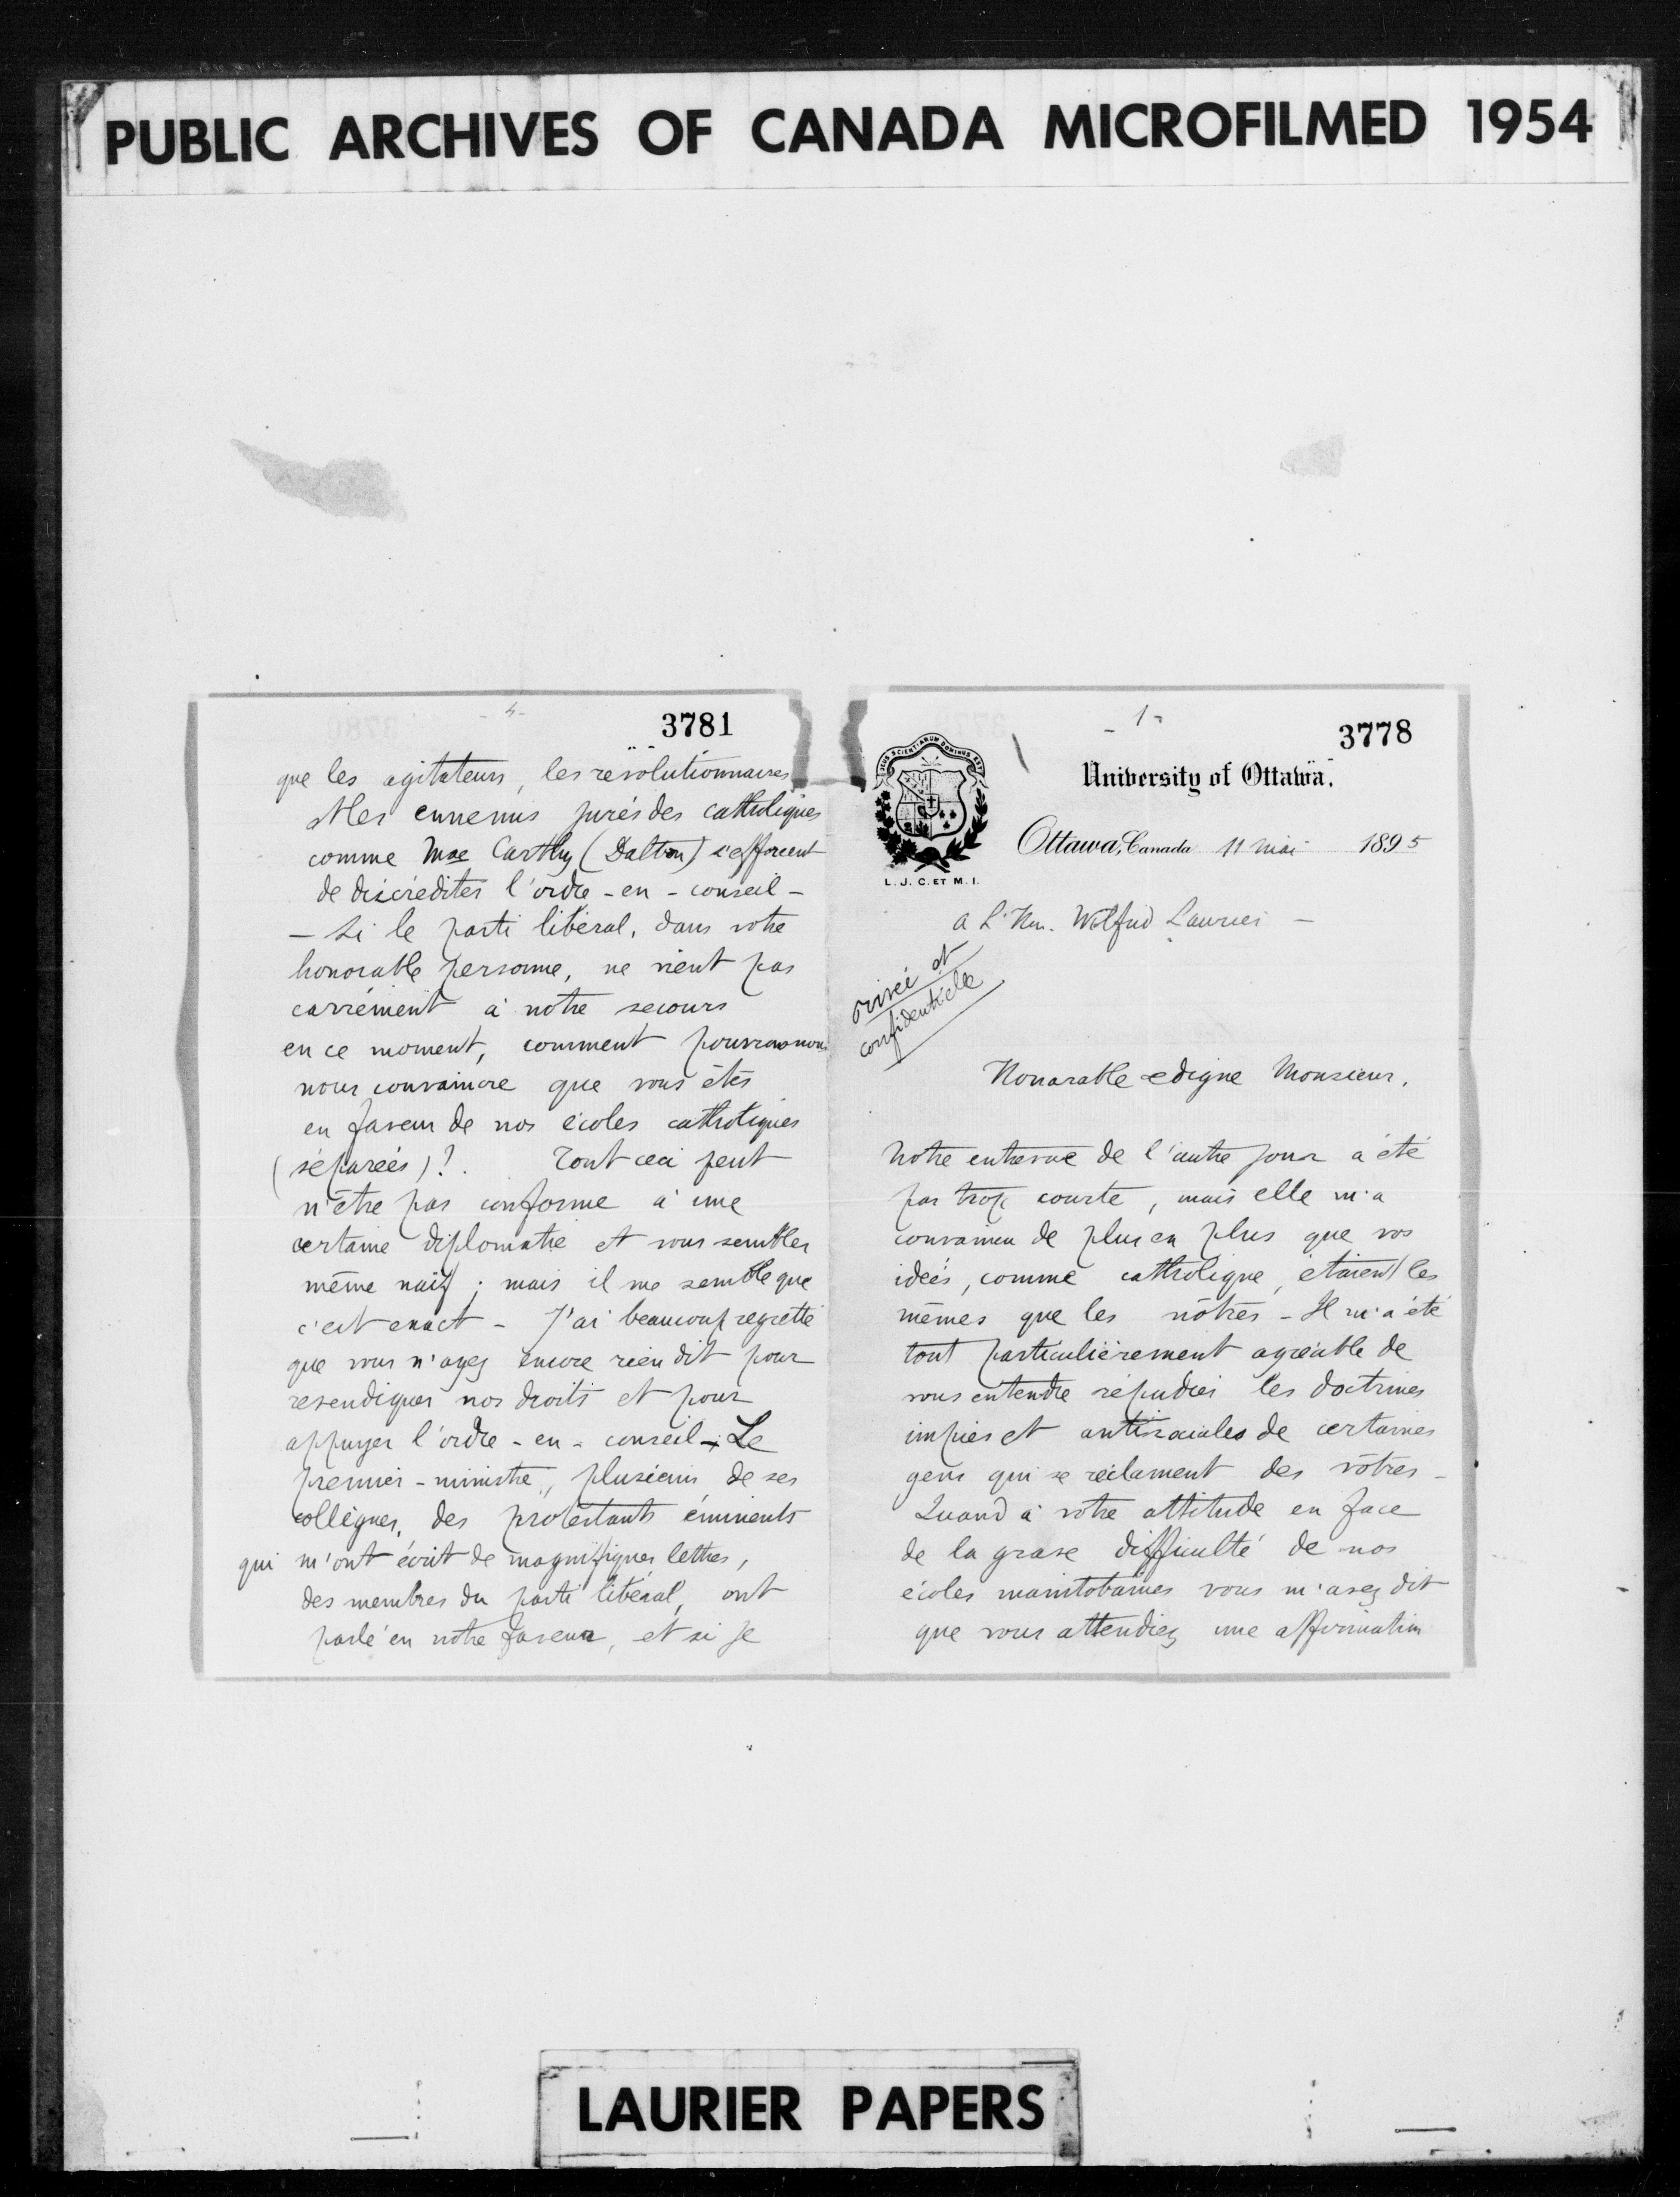 PUBLIC ARCHIVES OF CANADA MICROFILMED 1954
- 4 -
3781
que les agitateurs, les révolutionnaires,
les ennemis jurés des catholiques
comme Mac Carthy (Dalton) s'efforcent
de discréditer l'ordre-en-conseil -
- Si le parti libéral, dans votre
honorable personne, ne vient pas
carrément à notre secours
en ce moment, comment pourrons nous
nous convaincre que vous êtes
en faveur de nos écoles catholiques
(séparées)?. Tout ceci peut
n'être pas conforme à une
certaine diplomatie et vous sembler
même naïf; mais il me semble que
c'est exact - J'ai beaucoup regretté
que vous n'ayez encore rien dit pour
revendiquer nos droits et pour
appuyer l'ordre-en-conseil - Le
premier-ministre, plusieurs de ses
collègues, des protestants éminents
qui m'ont écrit de magnifiques lettres,
des membres du parti libéral, ont
parlé en notre faveur, et si je
- 1 -
3778
DEUS SCIENTIARUM DOMINUS EST
L. J. C. ET M. I.
University of Ottawa.
Ottawa, Canada 11 mai 1895
a L'Hon. Wilfrid Laurier -
privée et
confidentielle
Honorable e digne Monsieur,
Notre entrevue de l'autre jour a été
par trop courte, mais elle m'a
convaincu de plus en plus que vos
idées, comme catholique, étaient les
mêmes que les nôtres - Il m'a été
tout particulièrement agréable de
vous entendre répudier les doctrines
impies et antisociales de certaines
gens qui se réclament des vôtres -
Quand à votre attitude en face
de la grave difficulté de nos
écoles manitobaines vous m'avez dit
que vous attendiez une affirmation
LAURIER PAPERS